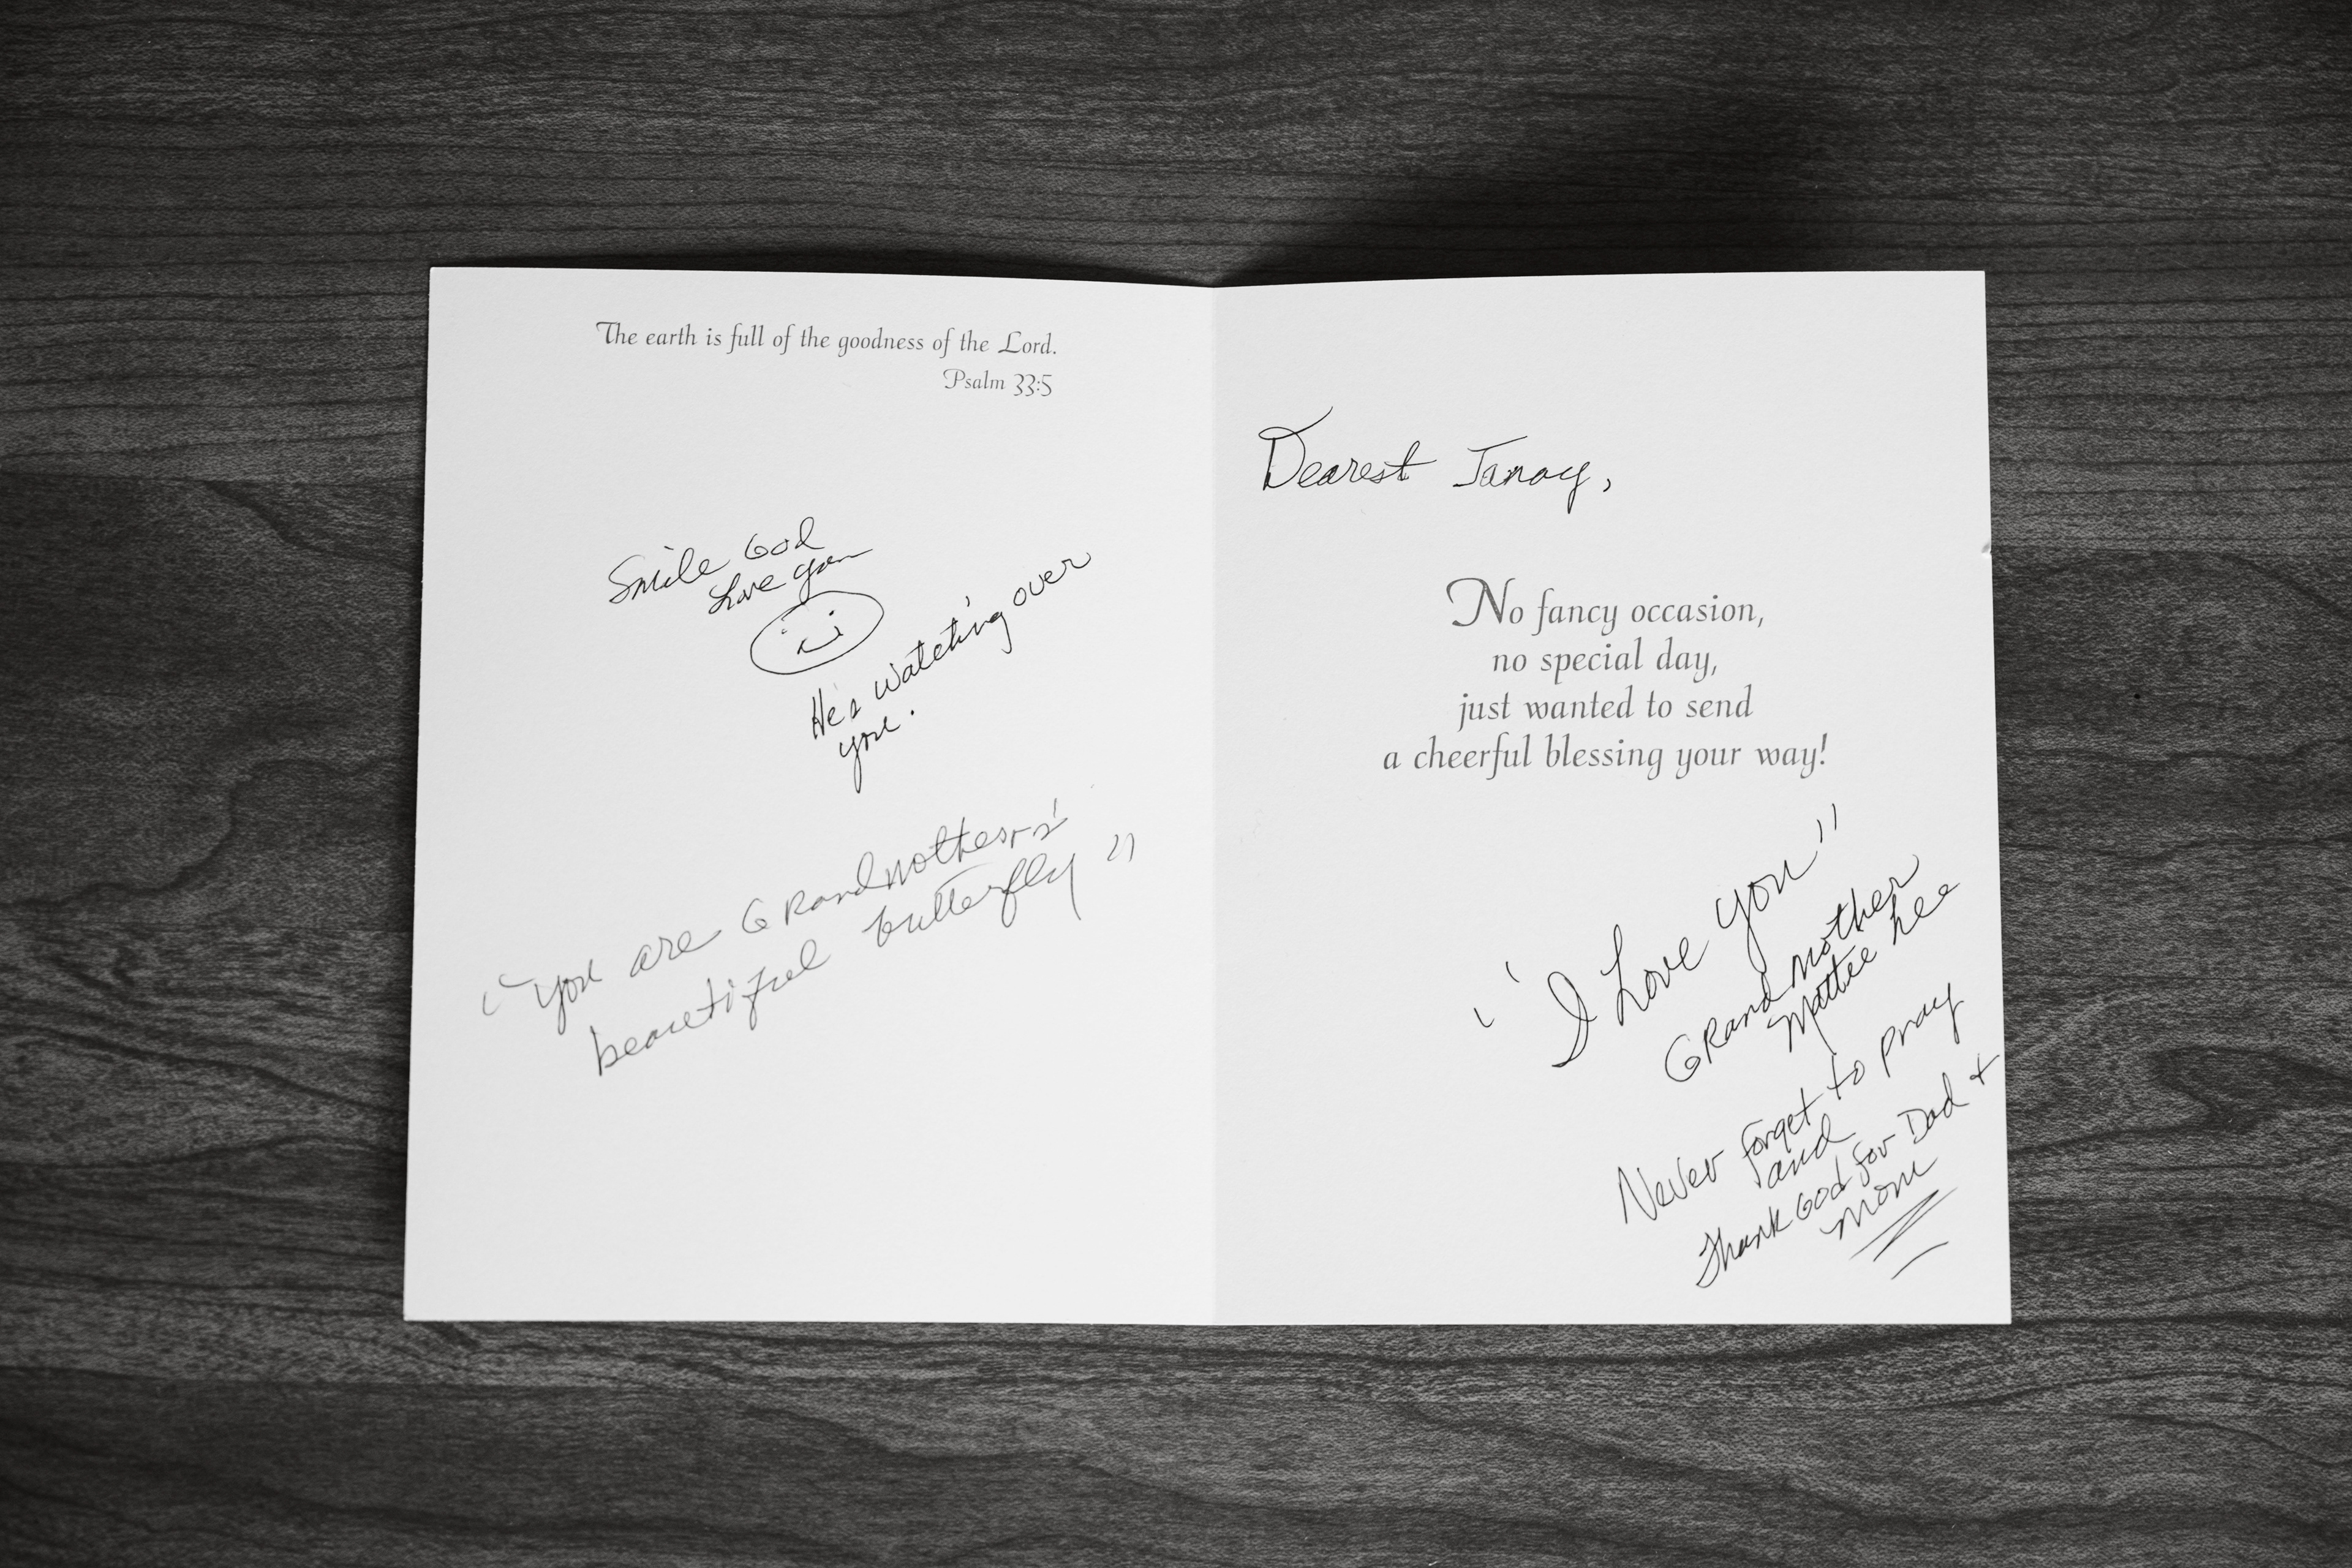 The earth is full of the goodness of the Lord.
Psalm 33:5
Smile God
Love you
He's watching over
you.
"you are Grandmothers'
beautiful butterfly"
Dearest Janay,
No fancy occasion,
no special day,
just wanted to send
a cheerful blessing your way!
"I Love you"
Grandmother
Mattie Lee
Never forget to pray
and
Thank God for Dad +
mom